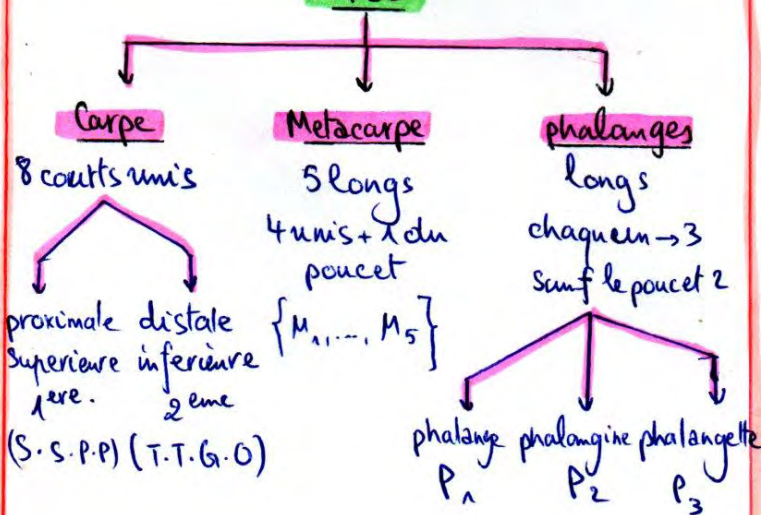 Carpe
8 courts unis
proximale
Superieure
1ere.
(S.S.P.P)
distale
inferieure
2eme
(T.T.G.O)
Metacarpe
5 longs
4 unis + 1 du
poucet
{M1,..., M5}
phalanges
longs
chaqueun → 3
Sauf le poucet 2
phalange
P1
phalangine
P2
phalangette
P3